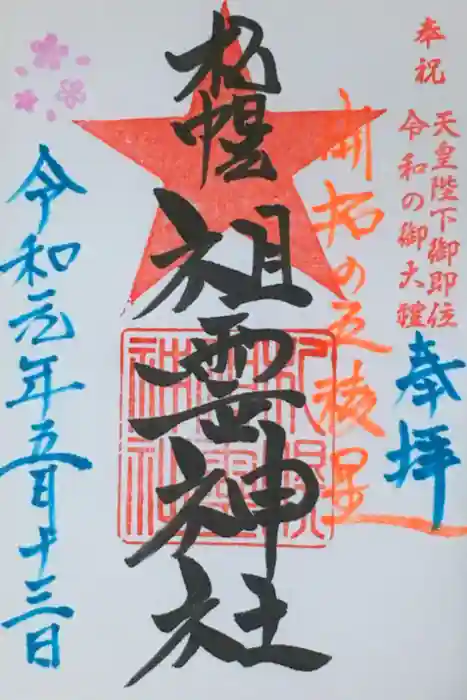 奉祝
天皇陛下御即位
令和の御大禮
奉拝
開拓の五稜星
札幌
祖霊神社
令和元年五月十三日